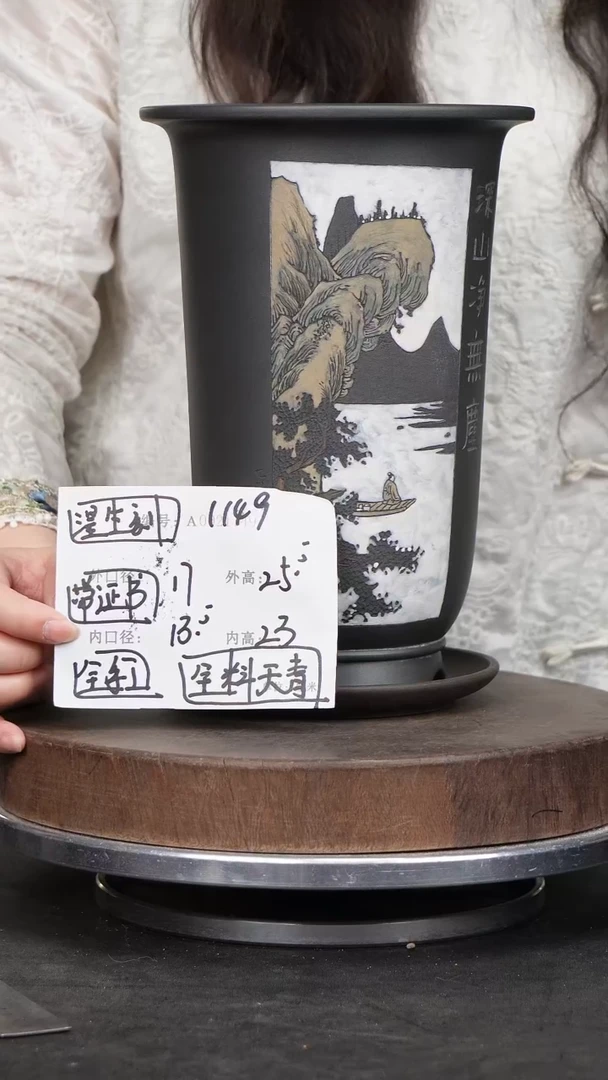 溪山净无尘
漫生刻 编号：A 1149
带证书 外口径： 17 外高：25.5
内口径： 13.5 内高：23
全手工 全料天青 米